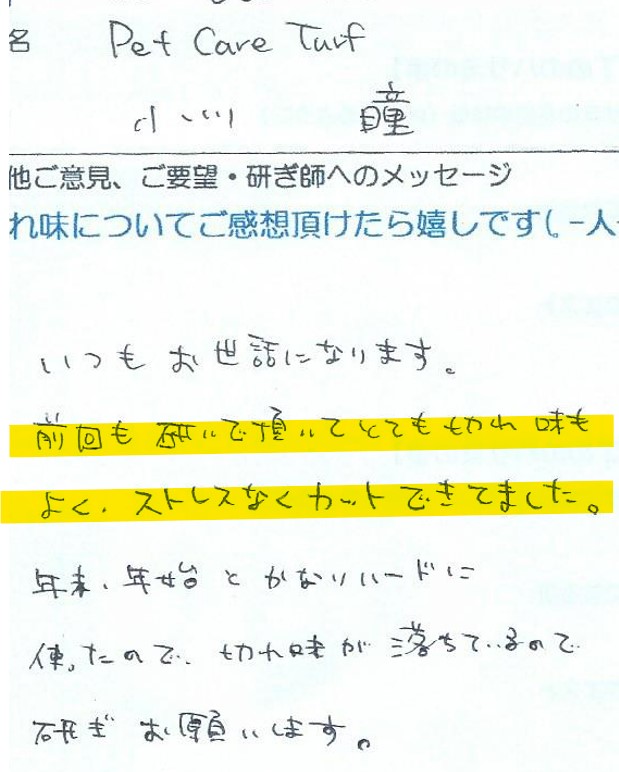 名 Pet Care Turf
小川 瞳
他ご意見、ご要望・研ぎ師へのメッセージ
れ味についてご感想頂けたら嬉しです(。-人-
いつも お世話になります。
前回も 研いで頂いてとても切れ 味も
よく、ストレスなくカットできてました。
年末、年始と かなりハードに
使ったので、切れ味が 落ちているので
研ぎ お願いします。